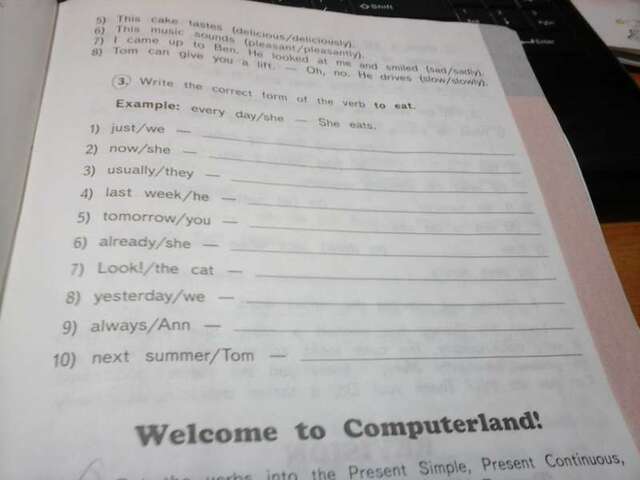 Shift
Enter
5) This cake tastes (delicious/deliciously).
6) This music sounds (pleasant/pleasantly).
7) I came up to Ben. He looked at me and smiled (sad/sadly).
8) Tom can give you a lift. — Oh, no. He drives (slow/slowly).
3. Write the correct form of the verb to eat.
Example: every day/she — She eats.
1) just/we —
2) now/she —
3) usually/they —
4) last week/he —
5) tomorrow/you —
6) already/she —
7) Look!/the cat —
8) yesterday/we —
9) always/Ann —
10) next summer/Tom —
Welcome to Computerland!
the verbs into the Present Simple, Present Continuous,